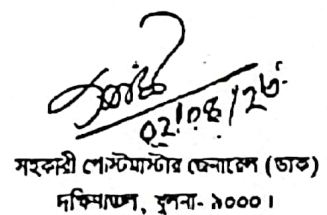 ০২/০৪/২৬
সহকারী পোস্টমাস্টার জেনারেল (ডাক)
দক্ষিণাঞ্চল, খুলনা- ৯০০০।